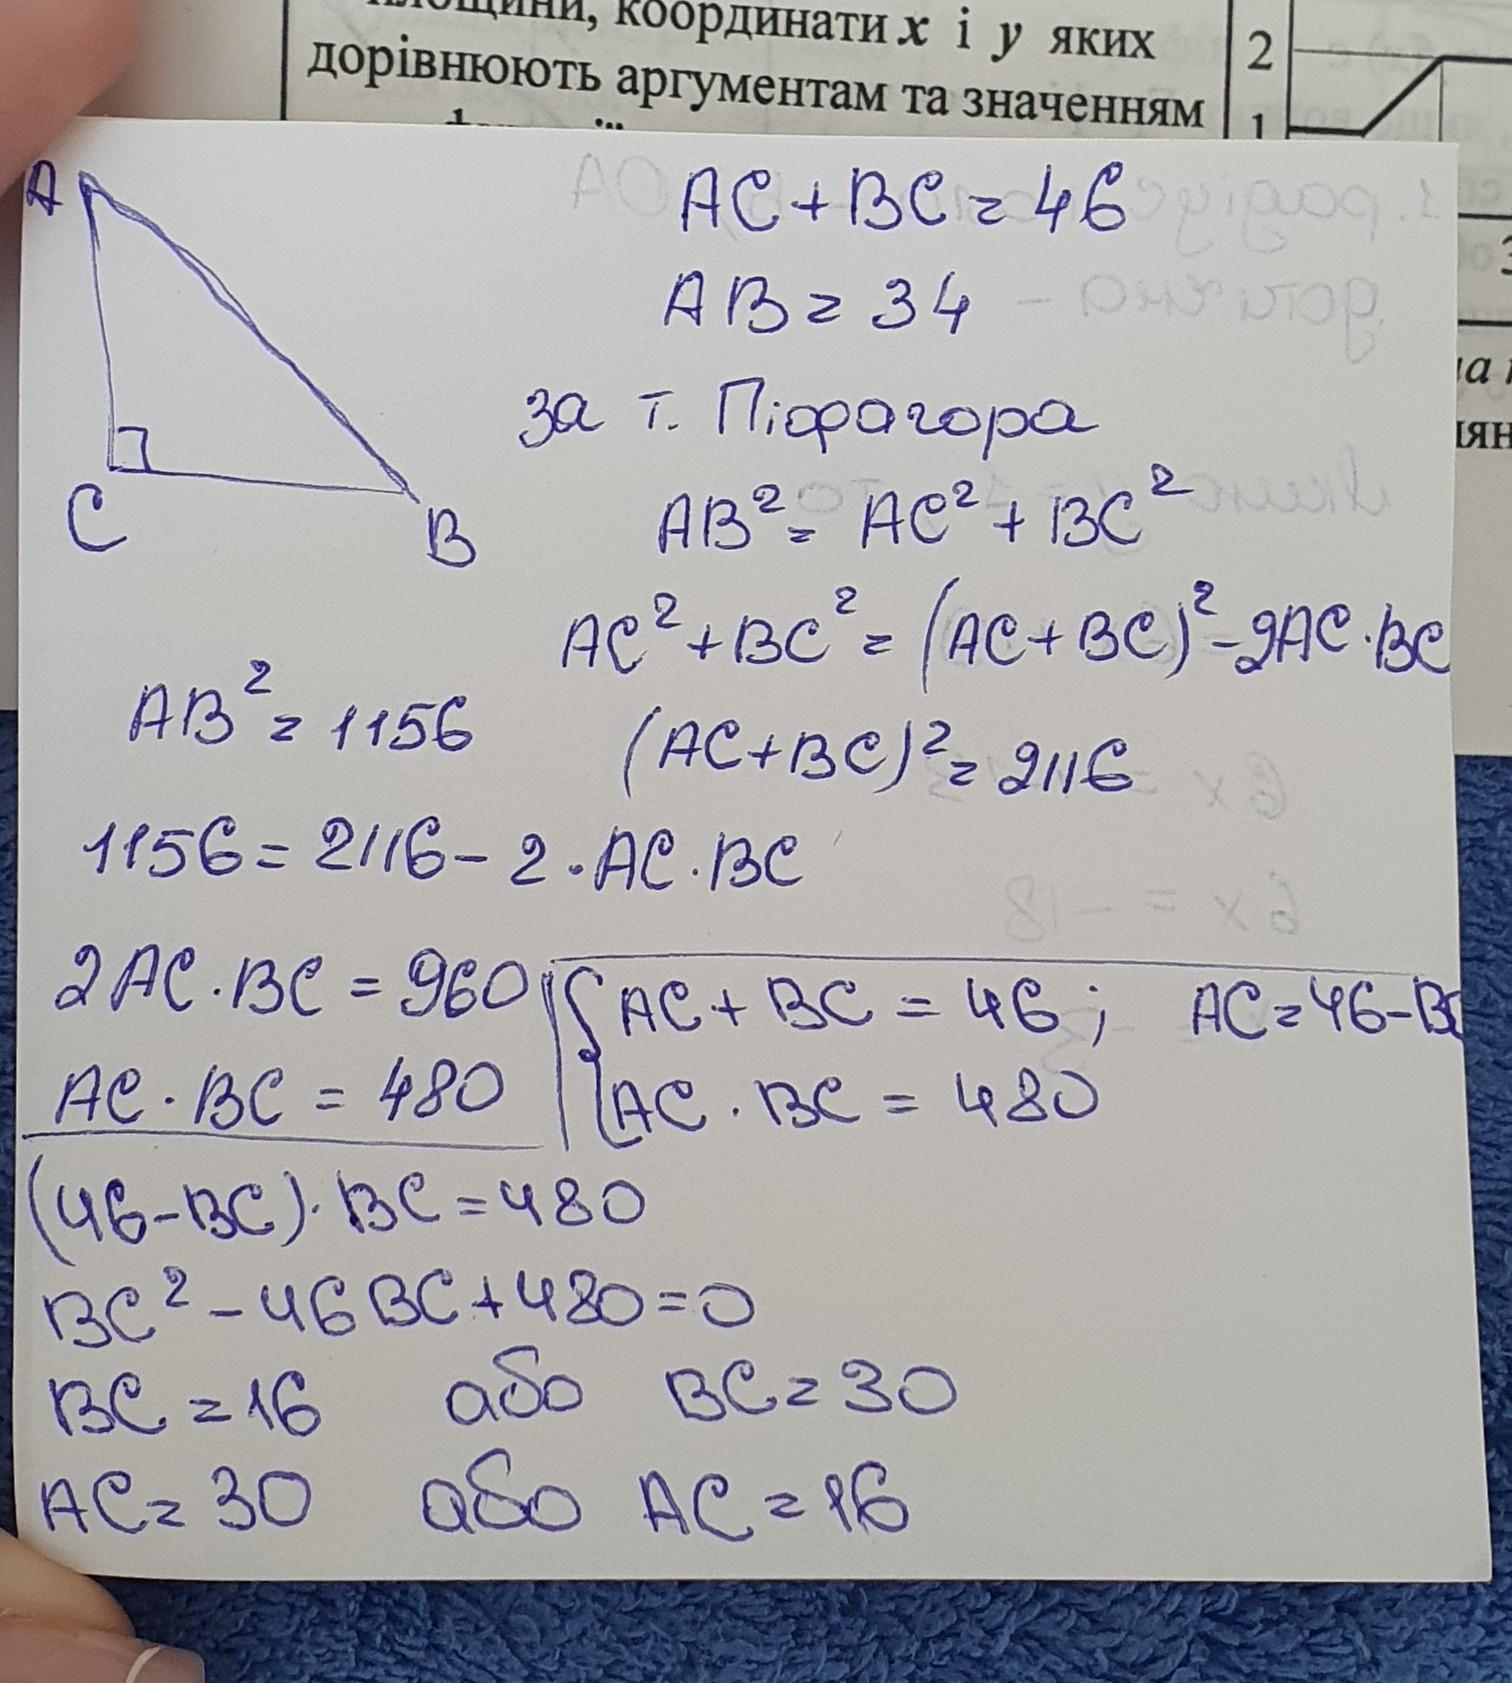 координати x і y яких
дорівнюють аргументам та значенням
2
1
A
C
B
AC + BC = 46
AB = 34
за т. Піфагора
AB² = AC² + BC²
AC² + BC² = (AC + BC)² - 2AC · BC
AB² = 1156
(AC + BC)² = 2116
1156 = 2116 - 2 · AC · BC
2AC · BC = 960
AC · BC = 480
{ AC + BC = 46 ; AC = 46 - BC
AC · BC = 480
(46 - BC) · BC = 480
BC² - 46BC + 480 = 0
BC = 16 або BC = 30
AC = 30 або AC = 16
6x = -18